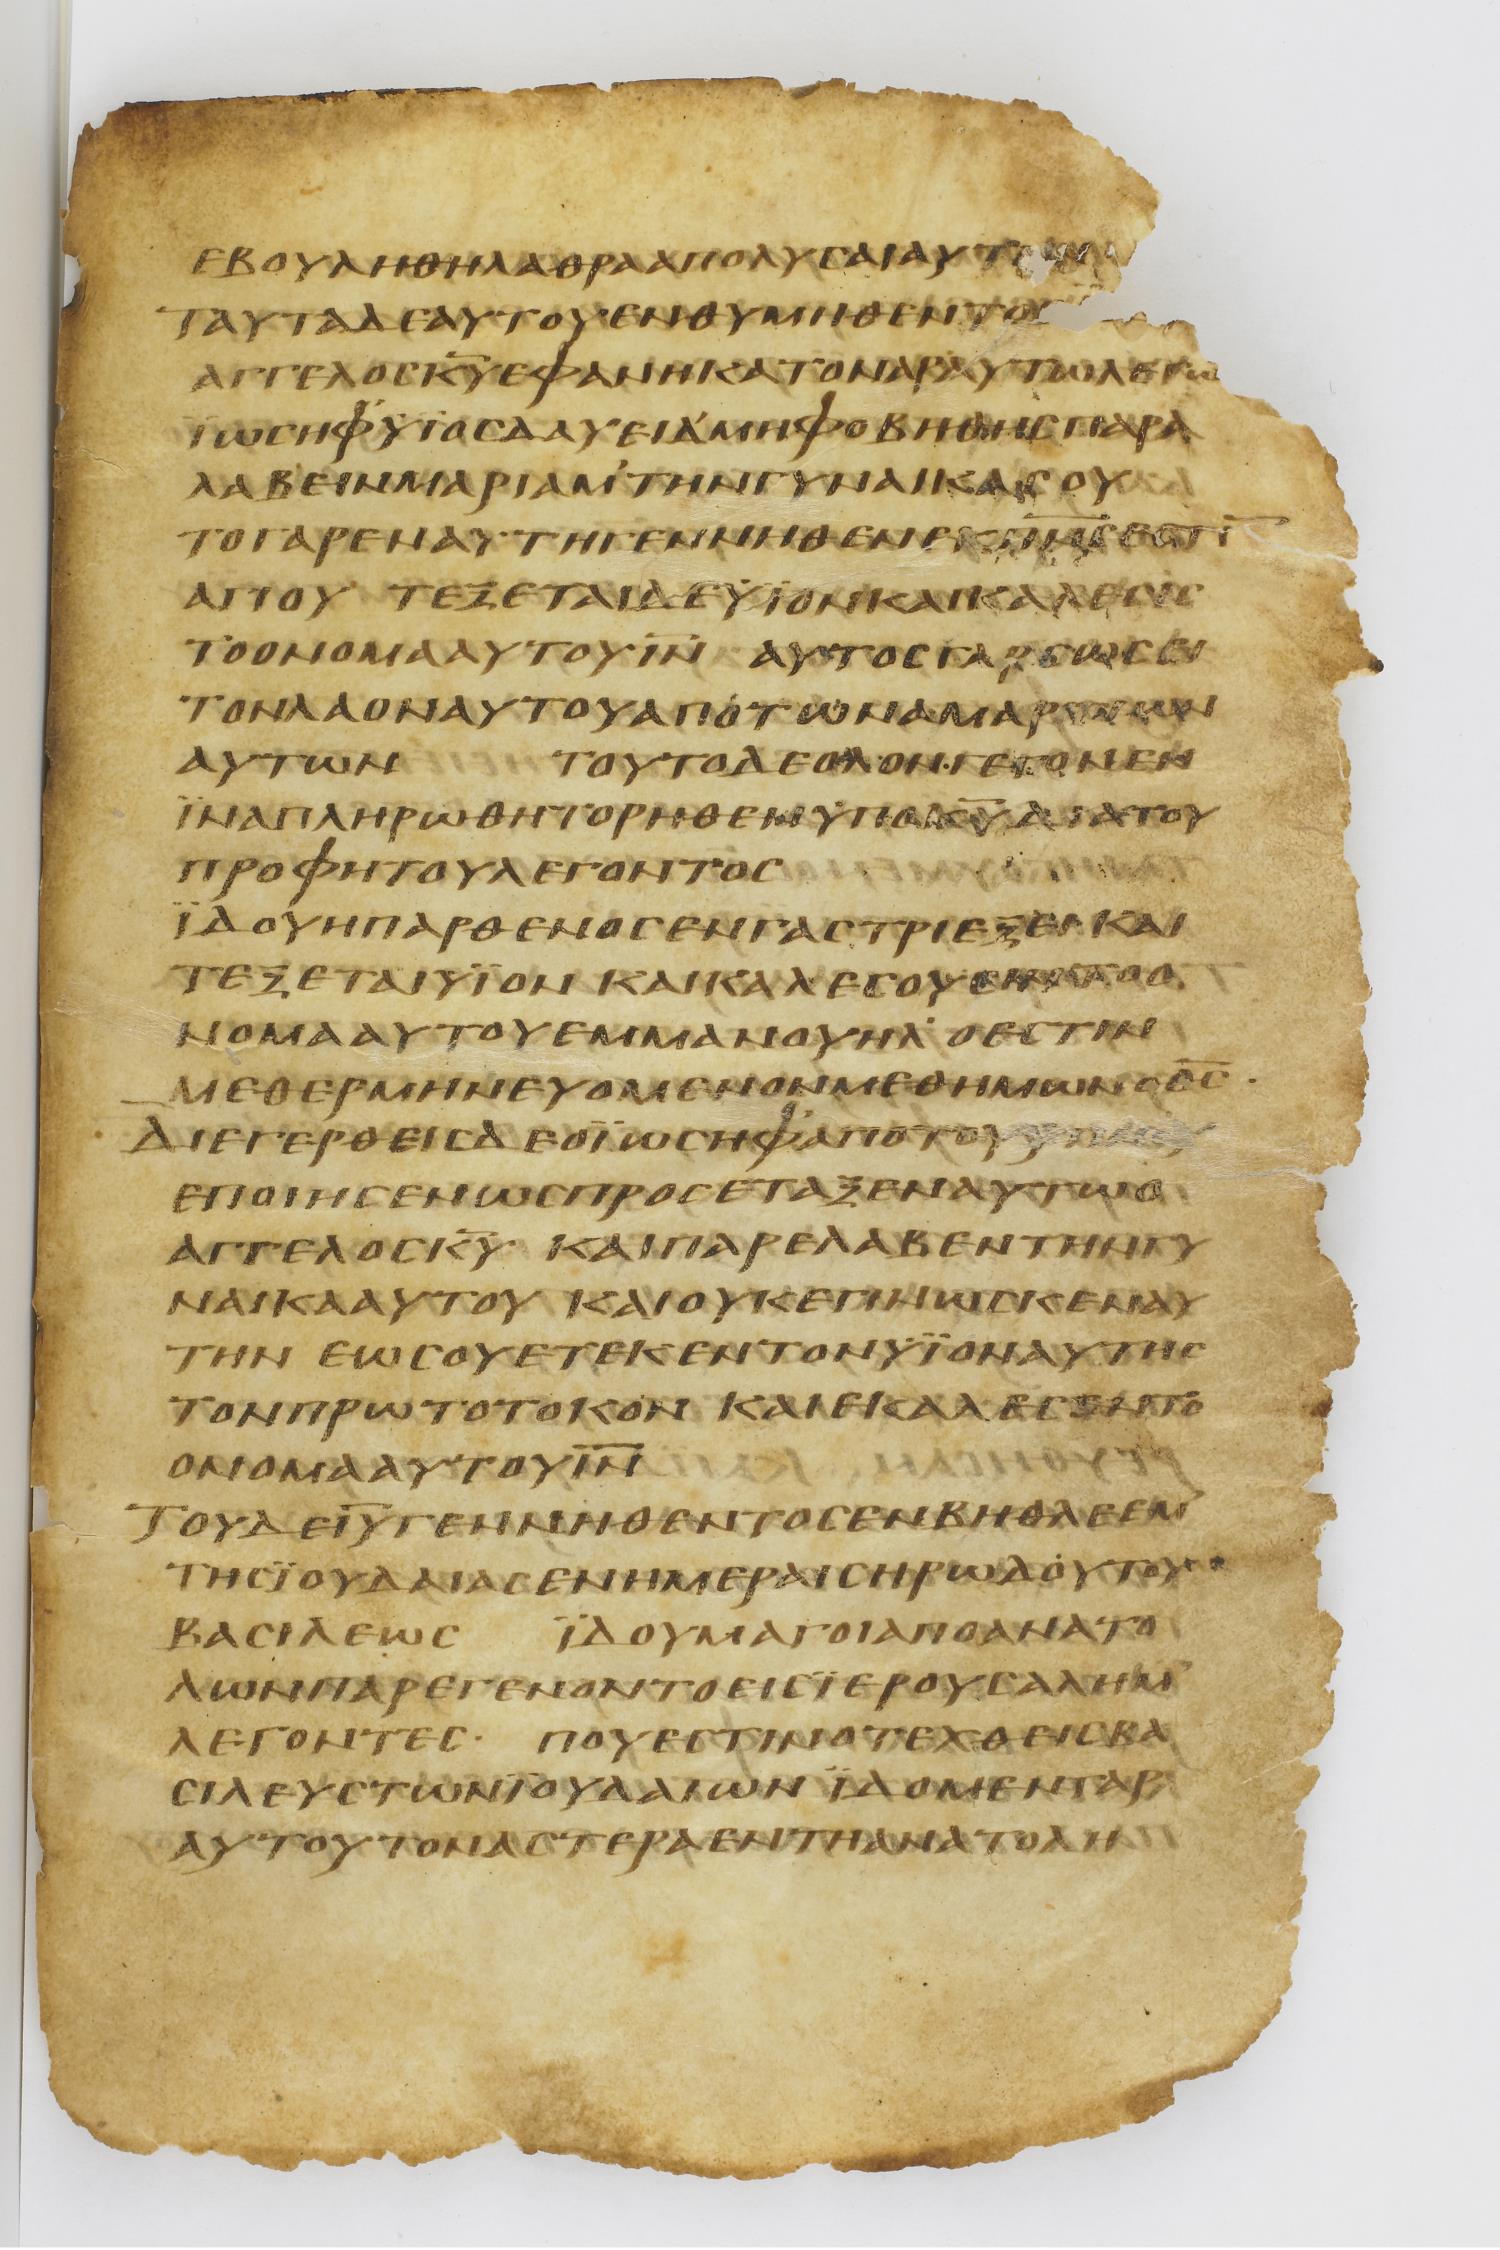 ΕΒΟΥΛΗΘΗΛΑΘΡΑΑΠΟΛΥΣΑΙΑΥΤΗΝ
ΤΑΥΤΑΔΕΑΥΤΟΥΕΝΘΥΜΗΘΕΝΤΟΣ
ΑΓΓΕΛΟΣΚ̅Υ̅ΕΦΑΝΗΚΑΤΟΝΑΡΑΥΤΩΛΕΓΩ
ΪΩΣΗΦ’ΫΙΟΣΔΑΥΕΙΔ’ΜΗΦΟΒΗΘΗΣΠΑΡΑ
ΛΑΒΕΙΝΜΑΡΙΑΜ’ΤΗΝΓΥΝΑΙΚΑΣΟΥ
ΤΟΓΑΡΕΝΑΥΤΗΓΕΝΝΗΘΕΝΕΚΠ̅Ν̅Σ̅ΕΣΤΙ̅
ΑΓΙΟΥ ΤΕΞΕΤΑΙΔΕΫΙΟΝΚΑΙΚΑΛΕΣΙΣ
ΤΟΟΝΟΜΑΑΥΤΟΥΙ̅Ν̅ ΑΥΤΟΣΓΑΡΣΩΣΕΙ
ΤΟΝΛΑΟΝΑΥΤΟΥΑΠΟΤΩΝΑΜΑΡΤΙΩΝ
ΑΥΤΩΝ ΤΟΥΤΟΔΕΟΛΟΝ·ΓΕΓΟΝΕΝ
ΪΝΑΠΛΗΡΩΘΗΤΟΡΗΘΕΝΫΠΟΚ̅Υ̅ΔΙΑΤΟΥ
ΠΡΟΦΗΤΟΥΛΕΓΟΝΤΟΣ
ΪΔΟΥΗΠΑΡΘΕΝΟΣΕΝΓΑΣΤΡΙΕΞΕΙΚΑΙ
ΤΕΞΕΤΑΙΫΙΟΝ ΚΑΙΚΑΛΕΣΟΥΣΙΝΤΟΟ
ΝΟΜΑΑΥΤΟΥΕΜΜΑΝΟΥΗΛ’ ΟΕΣΤΙΝ
ΜΕΘΕΡΜΗΝΕΥΟΜΕΝΟΝΜΕΘΗΜΩΝΟΘ̅Σ̅·
ΔΙΕΓΕΡΘΕΙΣΔΕΟΪΩΣΗΦ’ΑΠΟΤΟΥΫΠΝΟΥ
ΕΠΟΙΗΣΕΝΩΣΠΡΟΣΕΤΑΞΕΝΑΥΤΩΟ
ΑΓΓΕΛΟΣΚ̅Υ̅ ΚΑΙΠΑΡΕΛΑΒΕΝΤΗΝΓΥ
ΝΑΙΚΑΑΥΤΟΥ ΚΑΙΟΥΚΕΓΙΝΩΣΚΕΝΑΥ
ΤΗΝ ΕΩΣΟΥΕΤΕΚΕΝΤΟΝΫΪΟΝΑΥΤΗΣ
ΤΟΝΠΡΩΤΟΤΟΚΟΝ ΚΑΙΕΚΑΛΕΣΕΝΤΟ
ΟΝΟΜΑΑΥΤΟΥΙ̅Ν̅
ΤΟΥΔΕΙ̅Υ̅ΓΕΝΝΗΘΕΝΤΟΣΕΝΒΗΘΛΕΕΜ’
ΤΗΣΪΟΥΔΑΙΑΣΕΝΗΜΕΡΑΙΣΗΡΩΔΟΥΤΟΥ
ΒΑΣΙΛΕΩΣ ΪΔΟΥΜΑΓΟΙΑΠΟΑΝΑΤΟ
ΛΩΝΠΑΡΕΓΕΝΟΝΤΟΕΙΣΪΕΡΟΥΣΑΛΗΜ’
ΛΕΓΟΝΤΕΣ· ΠΟΥΕΣΤΙΝΟΤΕΧΘΕΙΣΒΑ
ΣΙΛΕΥΣΤΩΝΪΟΥΔΑΙΩΝ ΪΔΟΜΕΝΓΑΡ
ΑΥΤΟΥΤΟΝΑΣΤΕΡΑΕΝΤΗΑΝΑΤΟΛΗ